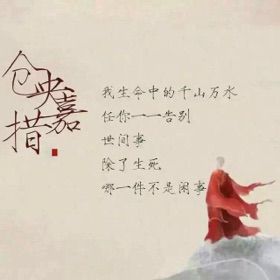 仓央嘉措
我生命中的千山万水
任你一一告别
世间事
除了生死
哪一件不是闲事